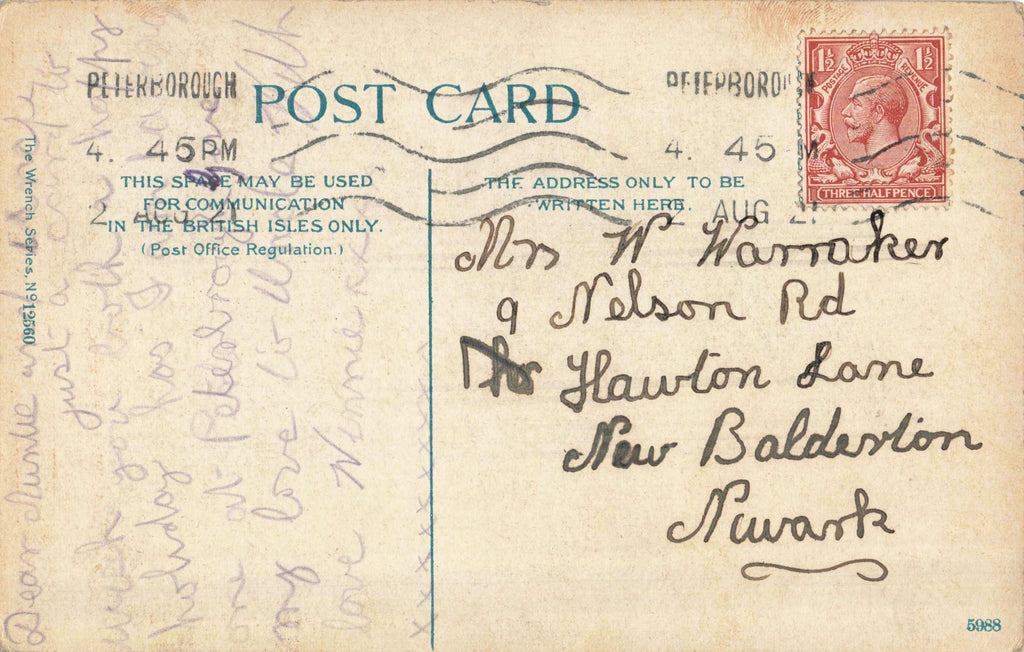 PETERBOROUGH
4. 45 PM
2 AUG 21
POST CARD
PETERBOROUGH
4. 45 M
2 AUG 21
1½ 1½
POSTAGE REVENUE
THREE HALFPENCE
THIS SPACE MAY BE USED
FOR COMMUNICATION
IN THE BRITISH ISLES ONLY.
(Post Office Regulation.)
THE ADDRESS ONLY TO BE
WRITTEN HERE.
The Wrench Series, No 12560
Mrs W Warraker
9 Nelson Rd
Hawton Lane
New Balderton
Newark
5988
Dear Auntie
just a to
wish you both a happy
holiday has
one at Peterborough
my love to Uncle
love xxx
x x x x x x x x x x